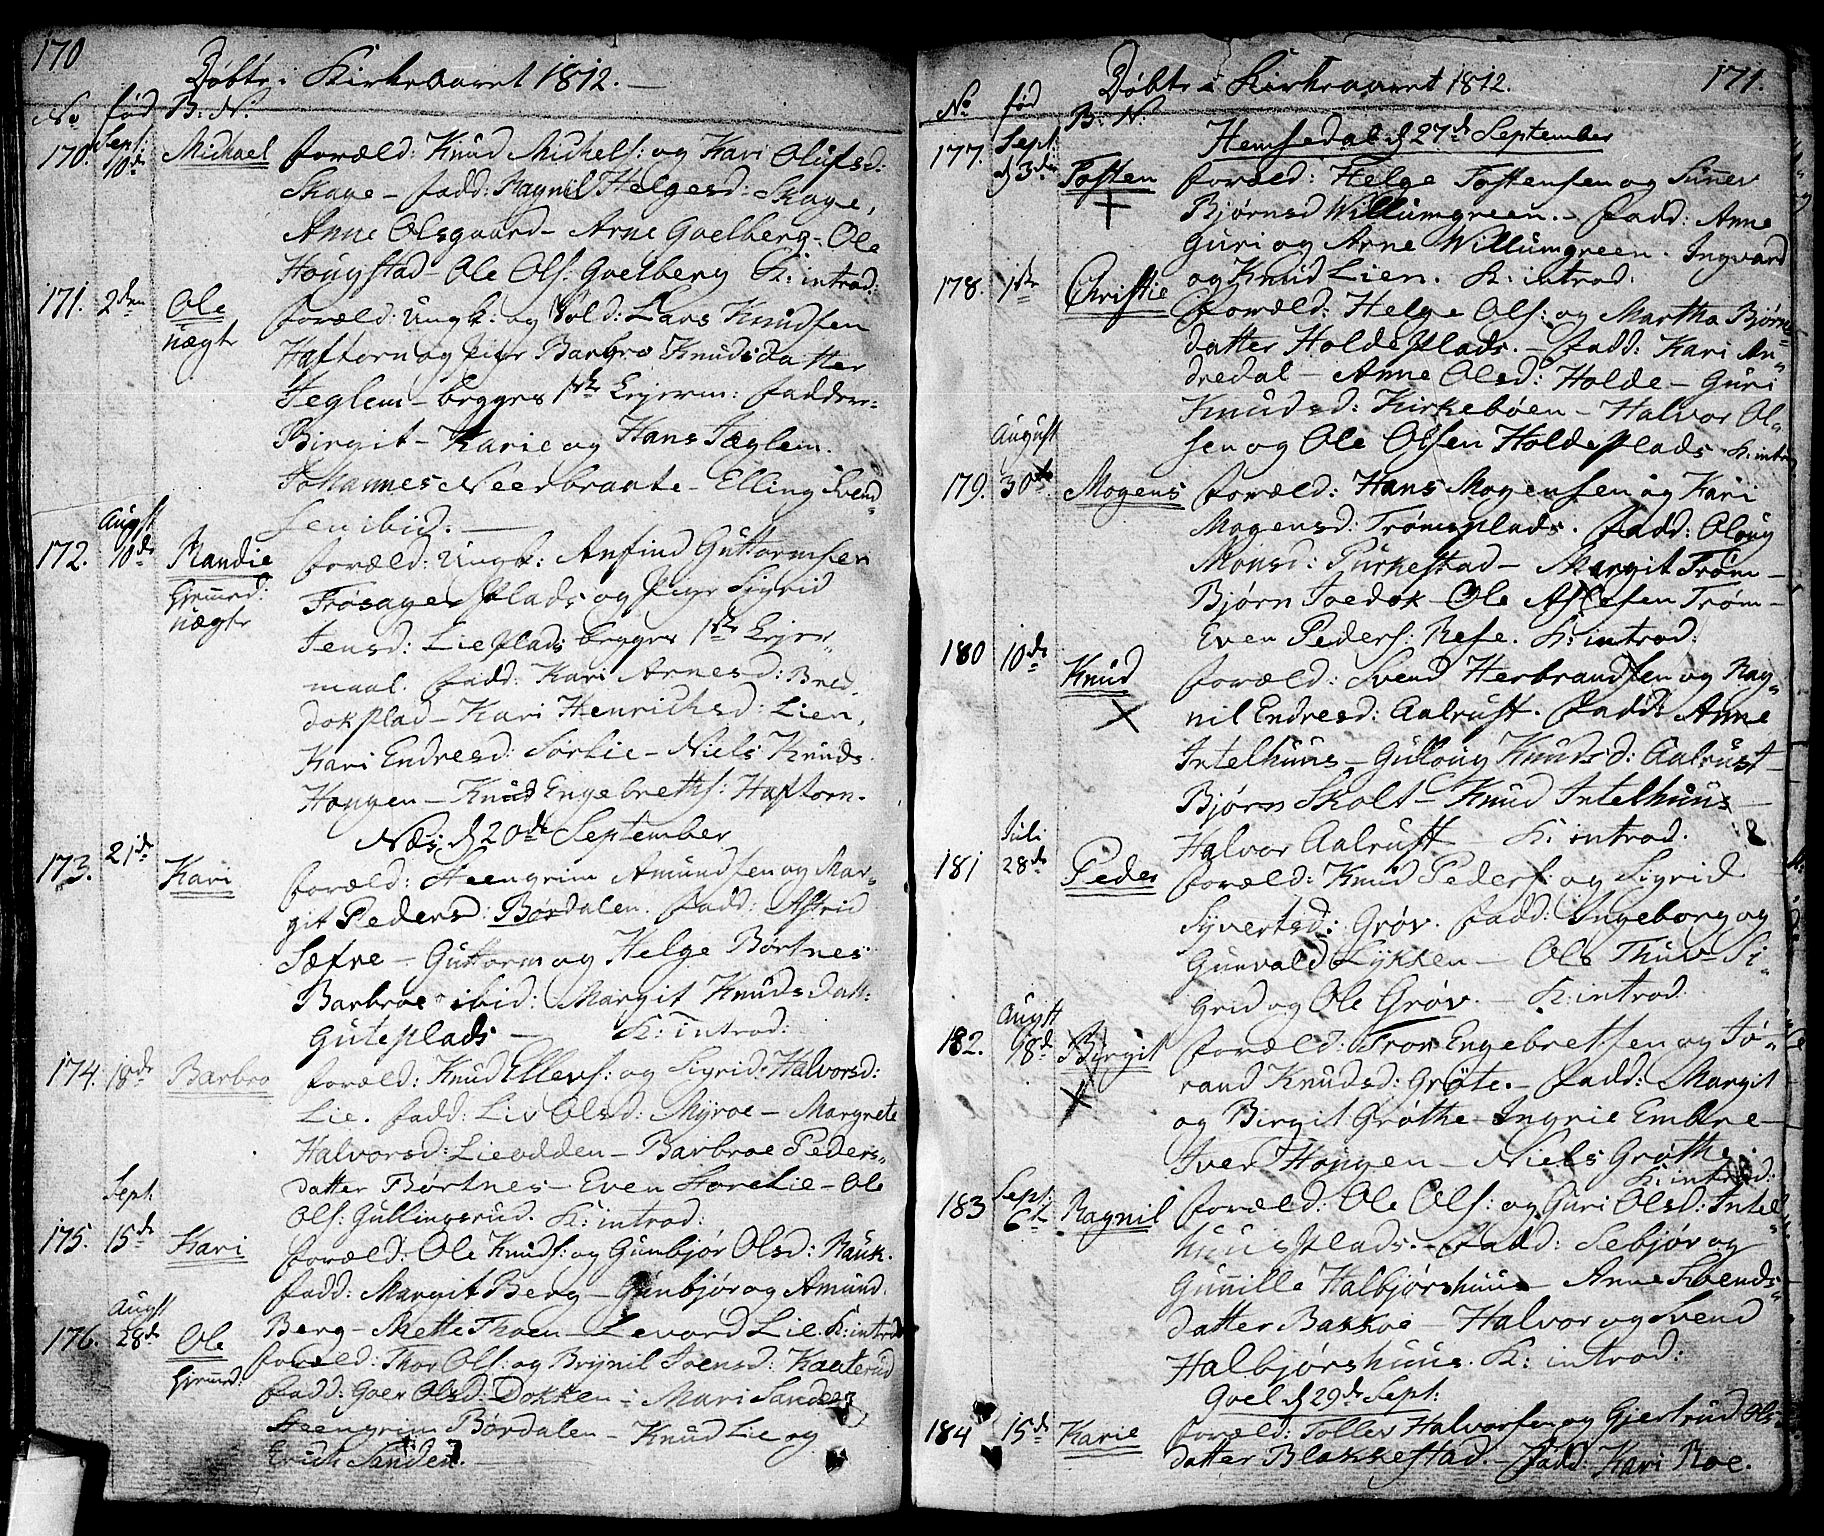 170
Døbte i Kirkeaaret 1812. —
No fød B. N.
170. Sept: 10de Michael foræld: Knud Michels: og Kari Olufsd:
Skage — fadd: Ragnil Helgesd: Skage,
Anne Olsgaard — Arne Goelberg — Ole
Hougstad — Ole Ols: Goelberg K: introd:
171. 2den Ole foræld: Ungk: og Sold: Lars Knudsen
nægte Haftorn og Pige Barbro Knudsdatter
Jeglem — begges 1ste Lejerm: faddere:
Birgit — Karie og Hans Jæglem.
Johannes Neerbraate — Elling Svend
sen ibid. —
172. Augst 10de Randie foræld: Ungk: Anfind Guttormsen
Grunrd: Trøsage Plads og Pige Sigrid
nægte Jensd: Lie Plads begges 1ste Lejer
maal. fadd: Kari Arnesd: Bred
dokplad — Kari Henrichsd: Lien,
Kari Endresd: Sørlie — Niels Knuds
Hougen — Knud Engebreths: Haftorn.
Næs d 20de September
173. 21de Kari foræld: Steengrim Amundsen og Mar
git Pedersd: Børdalen. fadd: Astrid
Sæfre — Guttorm og Helge Børtnes
Barbroe ibid: Margit Knudsdatt:
Guteplads — K: introd:
174. 18de Barbro foræld: Knud Ellevs: og Sigrid Halvorsd:
Lie. fadd: Liv Olsd: Myroe — Margrete
Halvorsd: Lieodden — Barbroe Peders
datter Børtnes — Even Storelie — Ole
Ols: Gullingsrud. K: introd:
175. Sept: 15de Kari foræld: Ole Knuds: og Gunbjør Olsd: Rauk.
fadd: Margit Berg — Gunbjør og Amund
Berg — Mette Thoen — Levord Lie. K: introd
176. Augst 28de Ole foræld: Thor Ols: og Brynil Svensd: Kaaterud
fadd: Goer Olsd: Dokken — Mari Sanden
Steengrim Børdalen — Knud Lie og
Erich Sanden. —
171.
Døbte i Kirkeaaret 1812.
No fød B. N:
Hemsedal d 27de September
177. Sept: d 3die Tosten foræld: Helge Tostensen og Sünev
Bjørnsd Willumgreen. — fadd: Anne
Guri og Arne Willumgreen. Ingvard
og Knud Lien. K: introd.
178. 1ste Christie foræld: Helge Ols: og Martha Bjørns
datter Holdeplads. — fadd: Kari An
dredal — Anne Olsd: Holde — Guri
Knudsd: Kirkebøen — Halvor Ol
sen og Ole Olsen Holdeplads. K: introd
179. August 30te Mogens foræld: Hans Mogensen og Kari
Mogensd: Trømsplads. fadd: Oloug
Monsd: Purkestad — Margit Trøm —
Bjørn Joedok — Ole Aslesen Trøm —
Even Peders: Rese. K: introd:
180 10de Knud foræld: Svend Herbrandsen og Rag
nil Endresd: Aalrust. fadd: Anne
Intelhuus — Guloug Knudsd: Aalrust —
Bjørn Skolt — Knud Intelhuus —
Halvor Aalrust — K: introd.
181 Juli 28de Peder foræld: Knud Peders: og Sigrid
Syvertsd: Grøv. fadd: Ingeborg og
Gunvald Lykken — Ole Thuv — Si
grid og Ole Grøv. — K: introd.
182. Augst 18de Birgit foræld: Tron Engebretsen og Jø
rand Knudsd: Grøte. — fadd: Margit
og Birgit Grøthe — Ingrie Embre —
Iver Hougen — Niels Grøthe.
K: introd:
183 Sept: 6te Ragnil foræld: Ole Ols: og Guri Olsd: Intel
huusplads. — fadd: Sebjør og
Gunnille Halbjørshuus — Anne Svends
datter Bakkoe — Halvor og Svend
Halbjørshuus. K: introd:
Goel d 29de Sept:
184 15de Karie foræld: Tollev Halvorsen og Gjertrud Ols
datter Blakkestad. — fadd: Kari Roe.